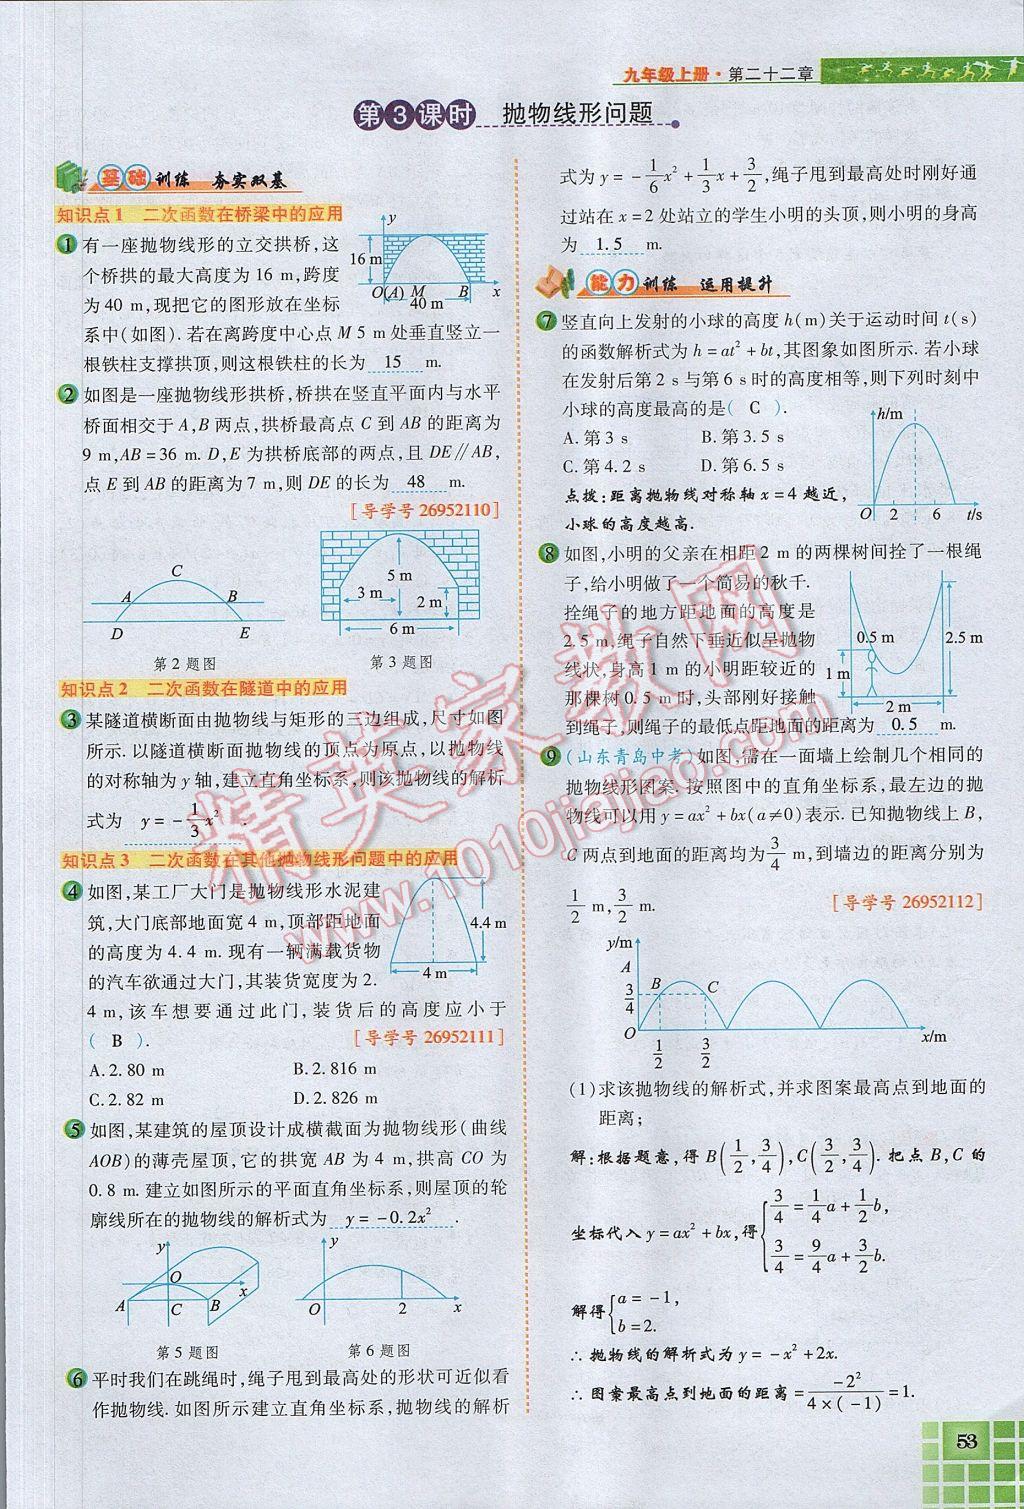 九年级上册·第二十二章
第3课时 抛物线形问题
基础训练 夯实双基
知识点1 二次函数在桥梁中的应用
1 有一座抛物线形的立交拱桥,这
个桥拱的最大高度为 16 m,跨度
为 40 m,现把它的图形放在坐标
系中(如图). 若在离跨度中心点 M 5 m 处垂直竖立一
根铁柱支撑拱顶,则这根铁柱的长为 15 m.
y
16 m
O(A) M B x
40 m
2 如图是一座抛物线形拱桥,桥拱在竖直平面内与水平
桥面相交于 A,B 两点,拱桥最高点 C 到 AB 的距离为
9 m,AB=36 m. D,E 为拱桥底部的两点,且 DE∥AB,
点 E 到 AB 的距离为 7 m,则 DE 的长为 48 m.
[导学号 26952110]
C
A B
D E
第 2 题图
5 m
3 m 2 m
6 m
第 3 题图
知识点2 二次函数在隧道中的应用
3 某隧道横断面由抛物线与矩形的三边组成,尺寸如图
所示. 以隧道横断面抛物线的顶点为原点,以抛物线
的对称轴为 y 轴,建立直角坐标系,则该抛物线的解析
式为 y=-1/3x² .
知识点3 二次函数在其他抛物线形问题中的应用
4 如图,某工厂大门是抛物线形水泥建
筑,大门底部地面宽 4 m,顶部距地面
的高度为 4.4 m. 现有一辆满载货物
的汽车欲通过大门,其装货宽度为 2.
4 m,该车想要通过此门,装货后的高度应小于
( B ). [导学号 26952111]
4.4 m
4 m
A. 2.80 m B. 2.816 m
C. 2.82 m D. 2.826 m
5 如图,某建筑的屋顶设计成横截面为抛物线形(曲线
AOB)的薄壳屋顶,它的拱宽 AB 为 4 m,拱高 CO 为
0.8 m. 建立如图所示的平面直角坐标系,则屋顶的轮
廓线所在的抛物线的解析式为 y=-0.2x² .
y
O
x
A C B
第 5 题图
y
O 2 x
第 6 题图
6 平时我们在跳绳时,绳子甩到最高处的形状可近似看
作抛物线. 如图所示建立直角坐标系,抛物线的解析
式为 y=-1/6x²+1/3x+3/2,绳子甩到最高处时刚好通
过站在 x=2 处站立的学生小明的头顶,则小明的身高
为 1.5 m.
能力训练 运用提升
7 竖直向上发射的小球的高度 h(m)关于运动时间 t(s)
的函数解析式为 h=at²+bt,其图象如图所示. 若小球
在发射后第 2 s 与第 6 s 时的高度相等,则下列时刻中
小球的高度最高的是( C ).
A. 第 3 s B. 第 3.5 s
C. 第 4.2 s D. 第 6.5 s
点拨:距离抛物线对称轴 x=4 越近,
小球的高度越高.
h/m
O 2 6 t/s
8 如图,小明的父亲在相距 2 m 的两棵树间拴了一根绳
子,给小明做了一个简易的秋千.
拴绳子的地方距地面的高度是
2.5 m,绳子自然下垂近似呈抛物
线状,身高 1 m 的小明距较近的
那棵树 0.5 m 时,头部刚好接触
到绳子,则绳子的最低点距地面的距离为 0.5 m.
0.5 m 2.5 m
1 m
2 m
9 (山东青岛中考)如图,需在一面墙上绘制几个相同的
抛物线形图案. 按照图中的直角坐标系,最左边的抛
物线可以用 y=ax²+bx(a≠0)表示. 已知抛物线上 B,
C 两点到地面的距离均为 3/4 m,到墙边的距离分别为
1/2 m,3/2 m. [导学号 26952112]
y/m
A
3/4 B C
O 1/2 3/2 x/m
(1)求该抛物线的解析式,并求图案最高点到地面的
距离;
解:根据题意,得 B(1/2,3/4),C(3/2,3/4). 把点 B,C 的
坐标代入 y=ax²+bx,得{3/4=1/4a+1/2b,
3/4=9/4a+3/2b.
解得{a=-1,
b=2.
∴ 抛物线的解析式为 y=-x²+2x.
∴ 图案最高点到地面的距离=-2²/4×(-1)=1.
53
精英家教网
www.1010jiajiao.com